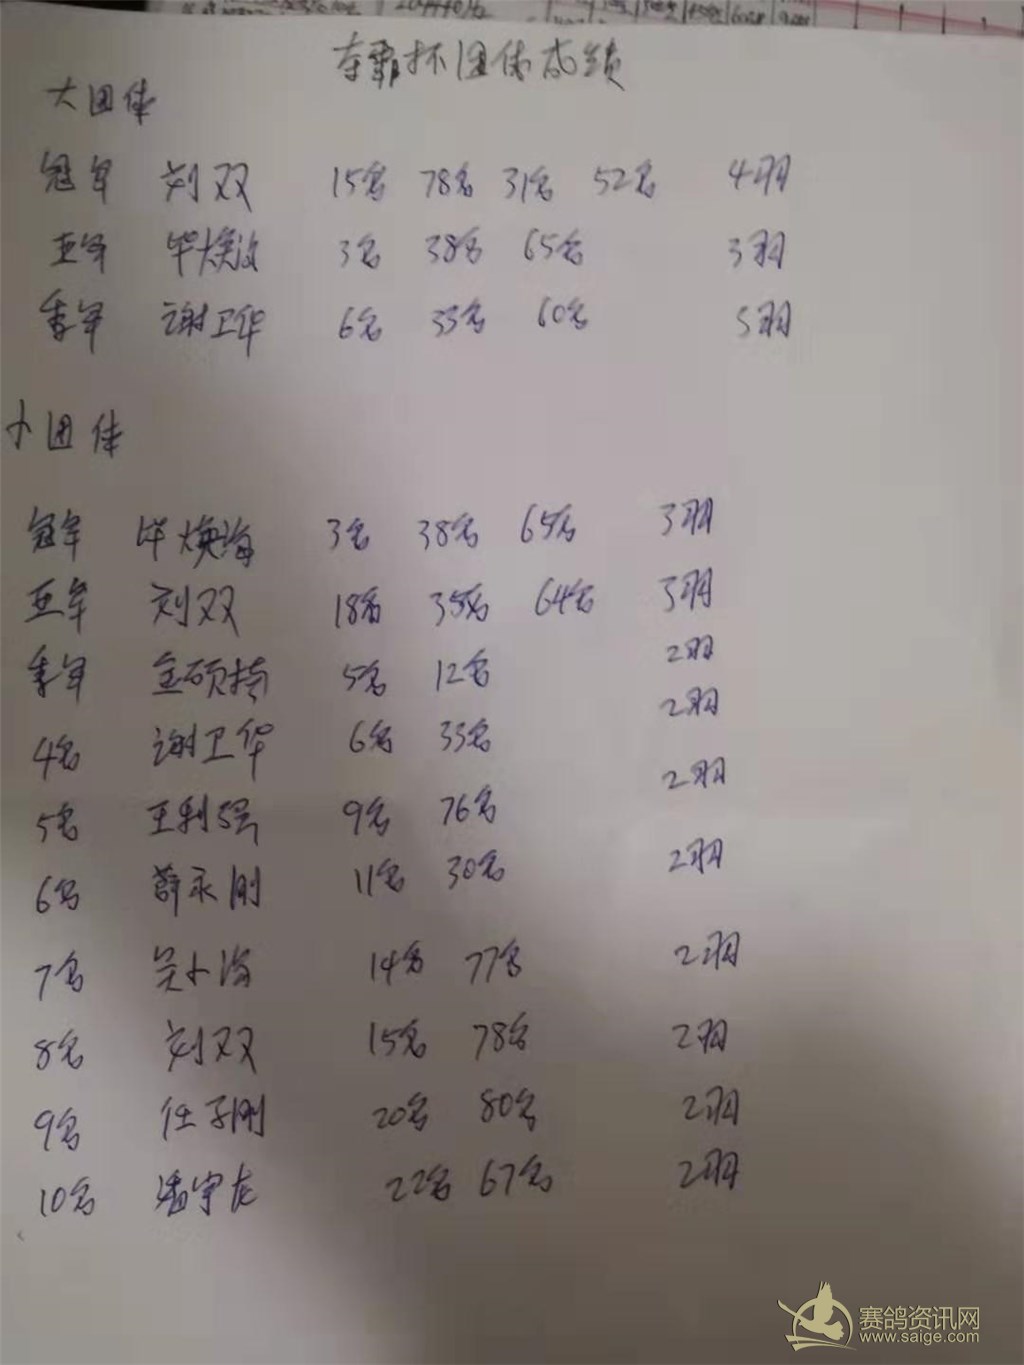 夺霸杯团体成绩
大团体
冠军 刘双 15名 78名 31名 52名 4羽
亚军 毕焕海 3名 38名 65名 3羽
季军 谢卫华 6名 33名 60名 3羽
小团体
冠军 毕焕海 3名 38名 65名 3羽
亚军 刘双 18名 35名 64名 3羽
季军 金硕楠 5名 12名 2羽
4名 谢卫华 6名 33名 2羽
5名 王利强 9名 76名 2羽
6名 薛永刚 11名 30名 2羽
7名 吴小海 14名 77名 2羽
8名 刘双 15名 78名 2羽
9名 任子刚 20名 80名 2羽
10名 潘宇龙 22名 67名 2羽
赛鸽资讯网
www.saige.com